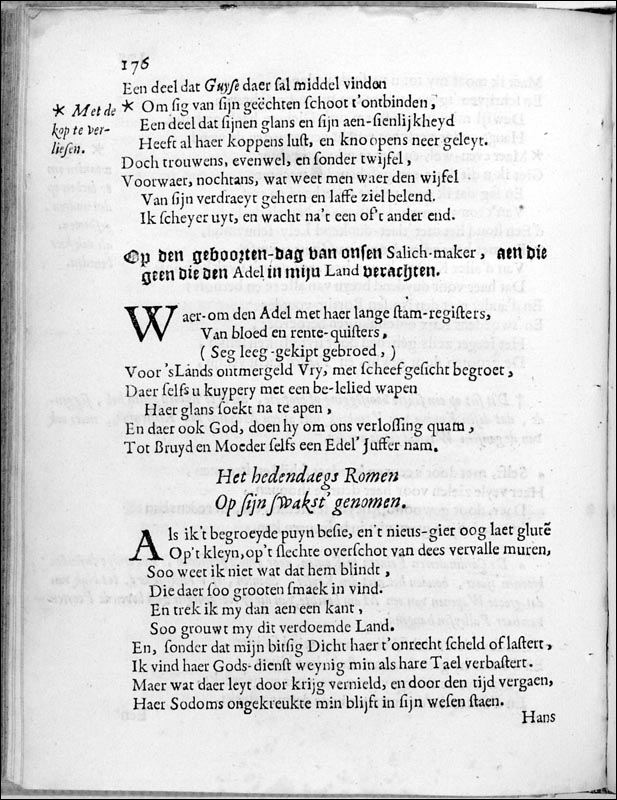 176
Een deel dat Guyse daer sal middel vinden
* Met de
kop te ver-
liesen.
* Om sig van sijn geëchten schoot t'ontbinden,
Een deel dat sijnen glans en sijn aen-sienlijkheyd
Heeft al haer koppens lust, en knoopens neer geleyt.
Doch trouwens, evenwel, en sonder twijfel,
Voorwaer, nochtans, wat weet men waer den wijfel
Van sijn verdraeyt gehern en laffe ziel belend.
Ik scheyer uyt, en wacht na't een of't ander end.
Op den geboorten-dag van onsen Salich-maker, aen die
geen die den Adel in mijn Land verachten.
Waer-om den Adel met haer lange stam-registers,
Van bloed en rente-quisters,
( Seg leeg-gekipt gebroed, )
Voor 'sLands ontmergeld Vry, met scheef gesicht begroet,
Daer selfs u kuypery met een be-lelied wapen
Haer glans soekt na te apen,
En daer ook God, doen hy om ons verlossing quam,
Tot Bruyd en Moeder selfs een Edel' Juffer nam.
Het hedendaegs Romen
Op sijn swakst' genomen.
Als ik't begroeyde puyn besie, en't nieus-gier oog laet glurē
Op't kleyn, op't slechte overschot van dees vervalle muren,
Soo weet ik niet wat dat hem blindt,
Die daer soo grooten smaek in vind.
En trek ik my dan aen een kant,
Soo grouwt my dit verdoemde Land.
En, sonder dat mijn bitsig Dicht haer t'onrecht scheld of lastert,
Ik vind haer Gods-dienst weynig min als hare Tael verbastert.
Maer wat daer leyt door krijg vernield, en door den tijd vergaen,
Haer Sodoms ongekreukte min blijft in sijn wesen staen.
Hans